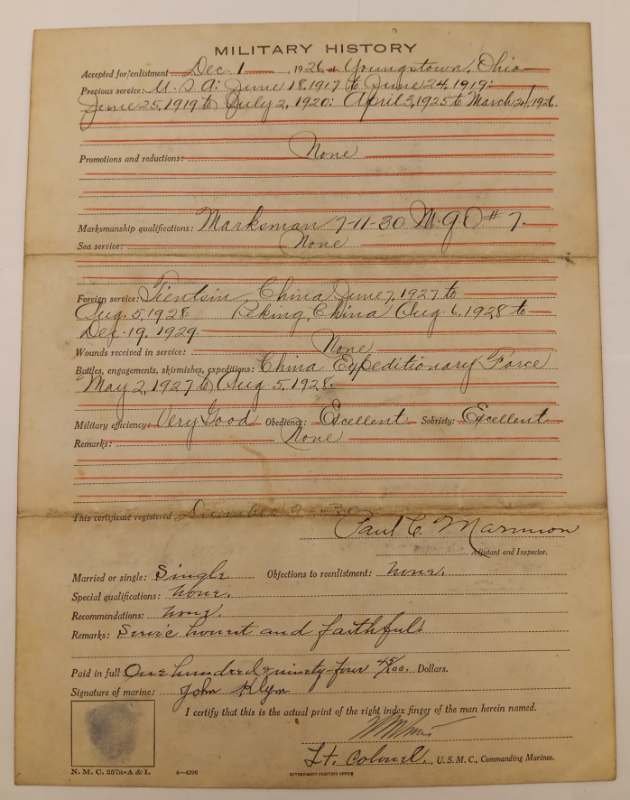 MILITARY HISTORY
Accepted for enlistment Dec. 1, 1926 at Youngstown, Ohio
Previous service: U.S.A: June 18, 1917 to June 24, 1919:
June 25, 1919 to July 2, 1920: April 5, 1925 to March 21, 1926.
Promotions and reductions: None
Marksmanship qualifications: Marksman 7-11-30 M.G.O #7.
Sea service: None
Foreign service: Tientsin, China June 7, 1927 to
Aug. 5, 1928 Peking, China Aug 6, 1928 to
Dec. 19, 1929.
Wounds received in service: None
Battles, engagements, skirmishes, expeditions: China Expeditionary Force
May 2, 1927 to Aug 5, 1928.
Military efficiency: Very Good Obedience: Excellent Sobriety: Excellent
Remarks: None
This certificate registered December
Paul C. Marmion
Adjutant and Inspector.
Married or single: Single Objections to reenlistment: none.
Special qualifications: none.
Recommendations: none.
Remarks: Service honest and faithful
Paid in full One hundred ninety-four Dollars.
Signature of marine: John Klym
I certify that this is the actual print of the right index finger of the man herein named.
Lt. Colonel, U.S.M.C., Commanding Marines.
N. M. C. 257a-A & I.
GOVERNMENT PRINTING OFFICE